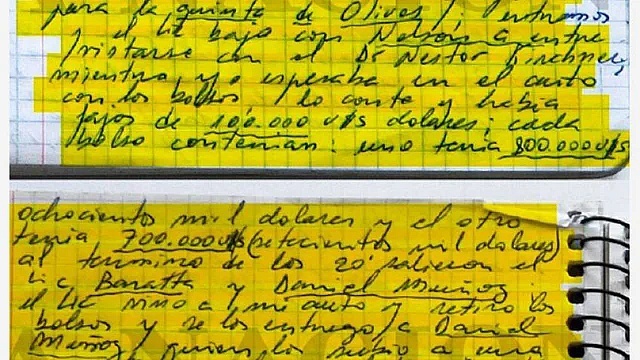 para la quinta de Olivos, entramos
y el Lic bajo con Nelson a entre
vistarse con el Dr Nestor Kirchner,
mientras yo esperaba en el auto
con los bolsos, lo conte y habia
fajos de 100.000 u$s dolares; cada
bolso contenian: uno tenia 800.000u$s
ochocientos mil dolares y el otro
tenia 700.000u$s (setecientos mil dolares)
al termino de los 20' salieron el
Lic Baratta y Daniel Muñoz
el Lic vino a mi auto y retiro los
bolsos y se los entrego a Daniel
Muñoz quien los subio a una